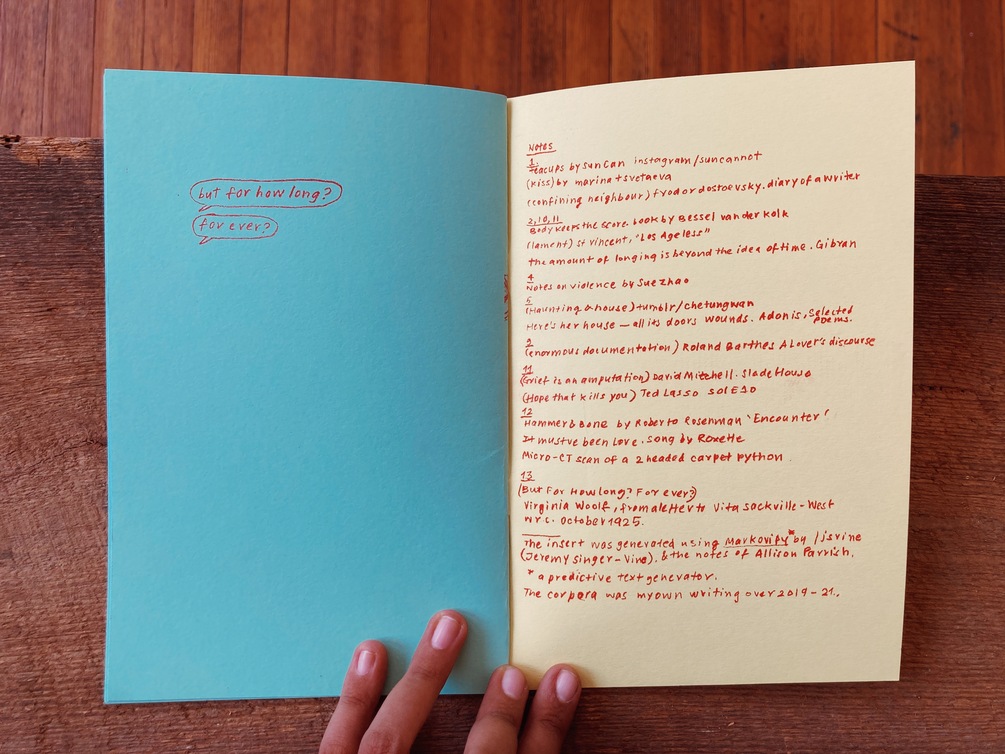 but for how long?
for ever?
Notes
1.
Teacups by Sun Can instagram/suncannot
(Kiss) by marina tsvetaeva
(confining neighbour) fyodor dostoevsky. diary of a writer
2,10,11
Body keeps the score. book by Bessel van der Kolk
(lament) St Vincent, "Los Ageless"
the amount of longing is beyond the idea of time. Gibran
4
Notes on violence by Sue zhao
5
(Haunting a house) tumblr/chetungwan
Here's her house — all its doors wounds. Adonis, Selected Poems.
9
(enormous documentation) Roland Barthes A Lover's discourse
11
(Grief is an amputation) David Mitchell. Slade House
(Hope that kills you) Ted Lasso S01E10
12
Hammer & Bone by Roberto Rosenman 'Encounter'
It must've been Love. song by Roxette
Micro-CT scan of a 2 headed carpet python.
13
(But for How long? For ever?)
Virginia Woolf, from a letter to Vita Sackville-West
W.r.c. October 1925.
The insert was generated using Markovify* by /jsvine
(Jeremy Singer-Vine). & the notes of Allison Parrish.
* a predictive text generator.
The corpora was my own writing over 2019-21.